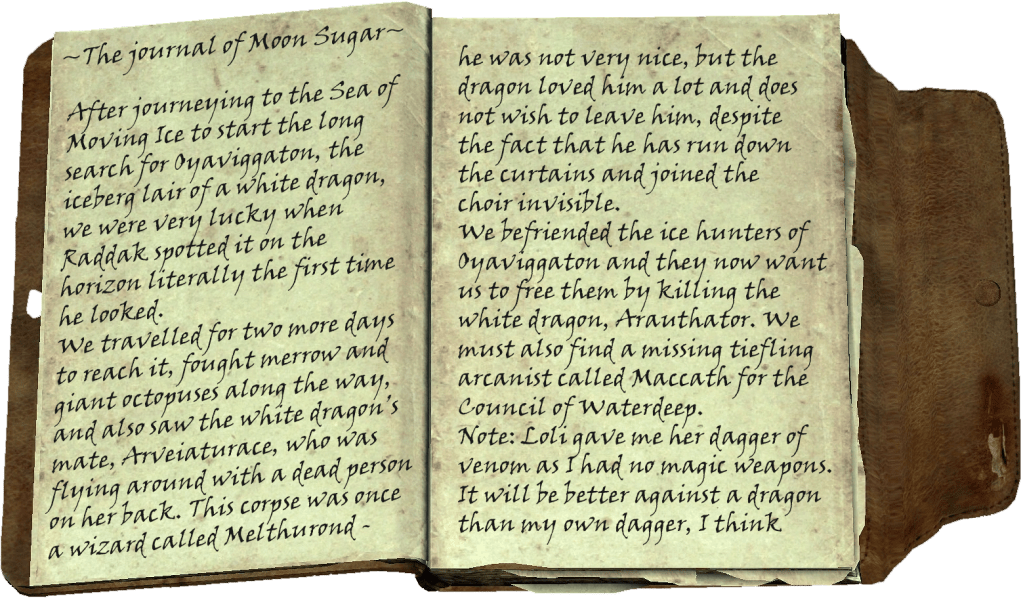 ~The journal of Moon Sugar~
After journeying to the Sea of
Moving Ice to start the long
search for Oyaviggaton, the
iceberg lair of a white dragon,
we were very lucky when
Raddak spotted it on the
horizon literally the first time
he looked.
We travelled for two more days
to reach it, fought merrow and
giant octopuses along the way,
and also saw the white dragon's
mate, Arveiaturace, who was
flying around with a dead person
on her back. This corpse was once
a wizard called Melthurond -
he was not very nice, but the
dragon loved him a lot and does
not wish to leave him, despite
the fact that he has run down
the curtains and joined the
choir invisible.
We befriended the ice hunters of
Oyaviggaton and they now want
us to free them by killing the
white dragon, Arauthator. We
must also find a missing tiefling
arcanist called Maccath for the
Council of Waterdeep.
Note: Loli gave me her dagger of
venom as I had no magic weapons.
It will be better against a dragon
than my own dagger, I think